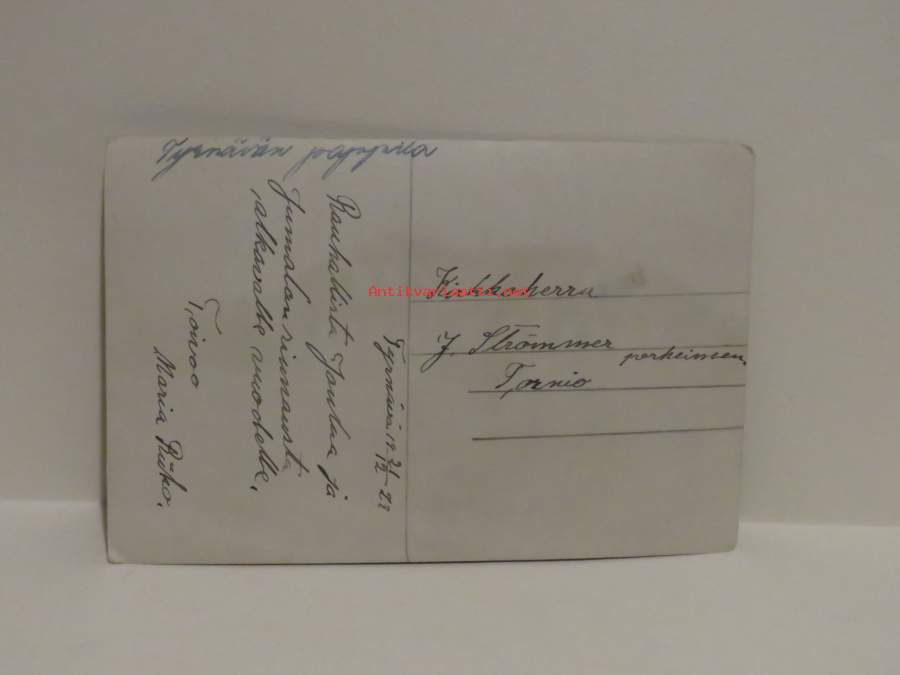 Tyrnävän pappila
Tyrnävä 19 21/12 22
Rauhallista Joulua ja
Jumalan siunausta
alkavalle vuodelle,
Toivoo
Maria
Kirkkoherra
J. Strömmer
perheineen.
Tornio
Antikvariaatti.net